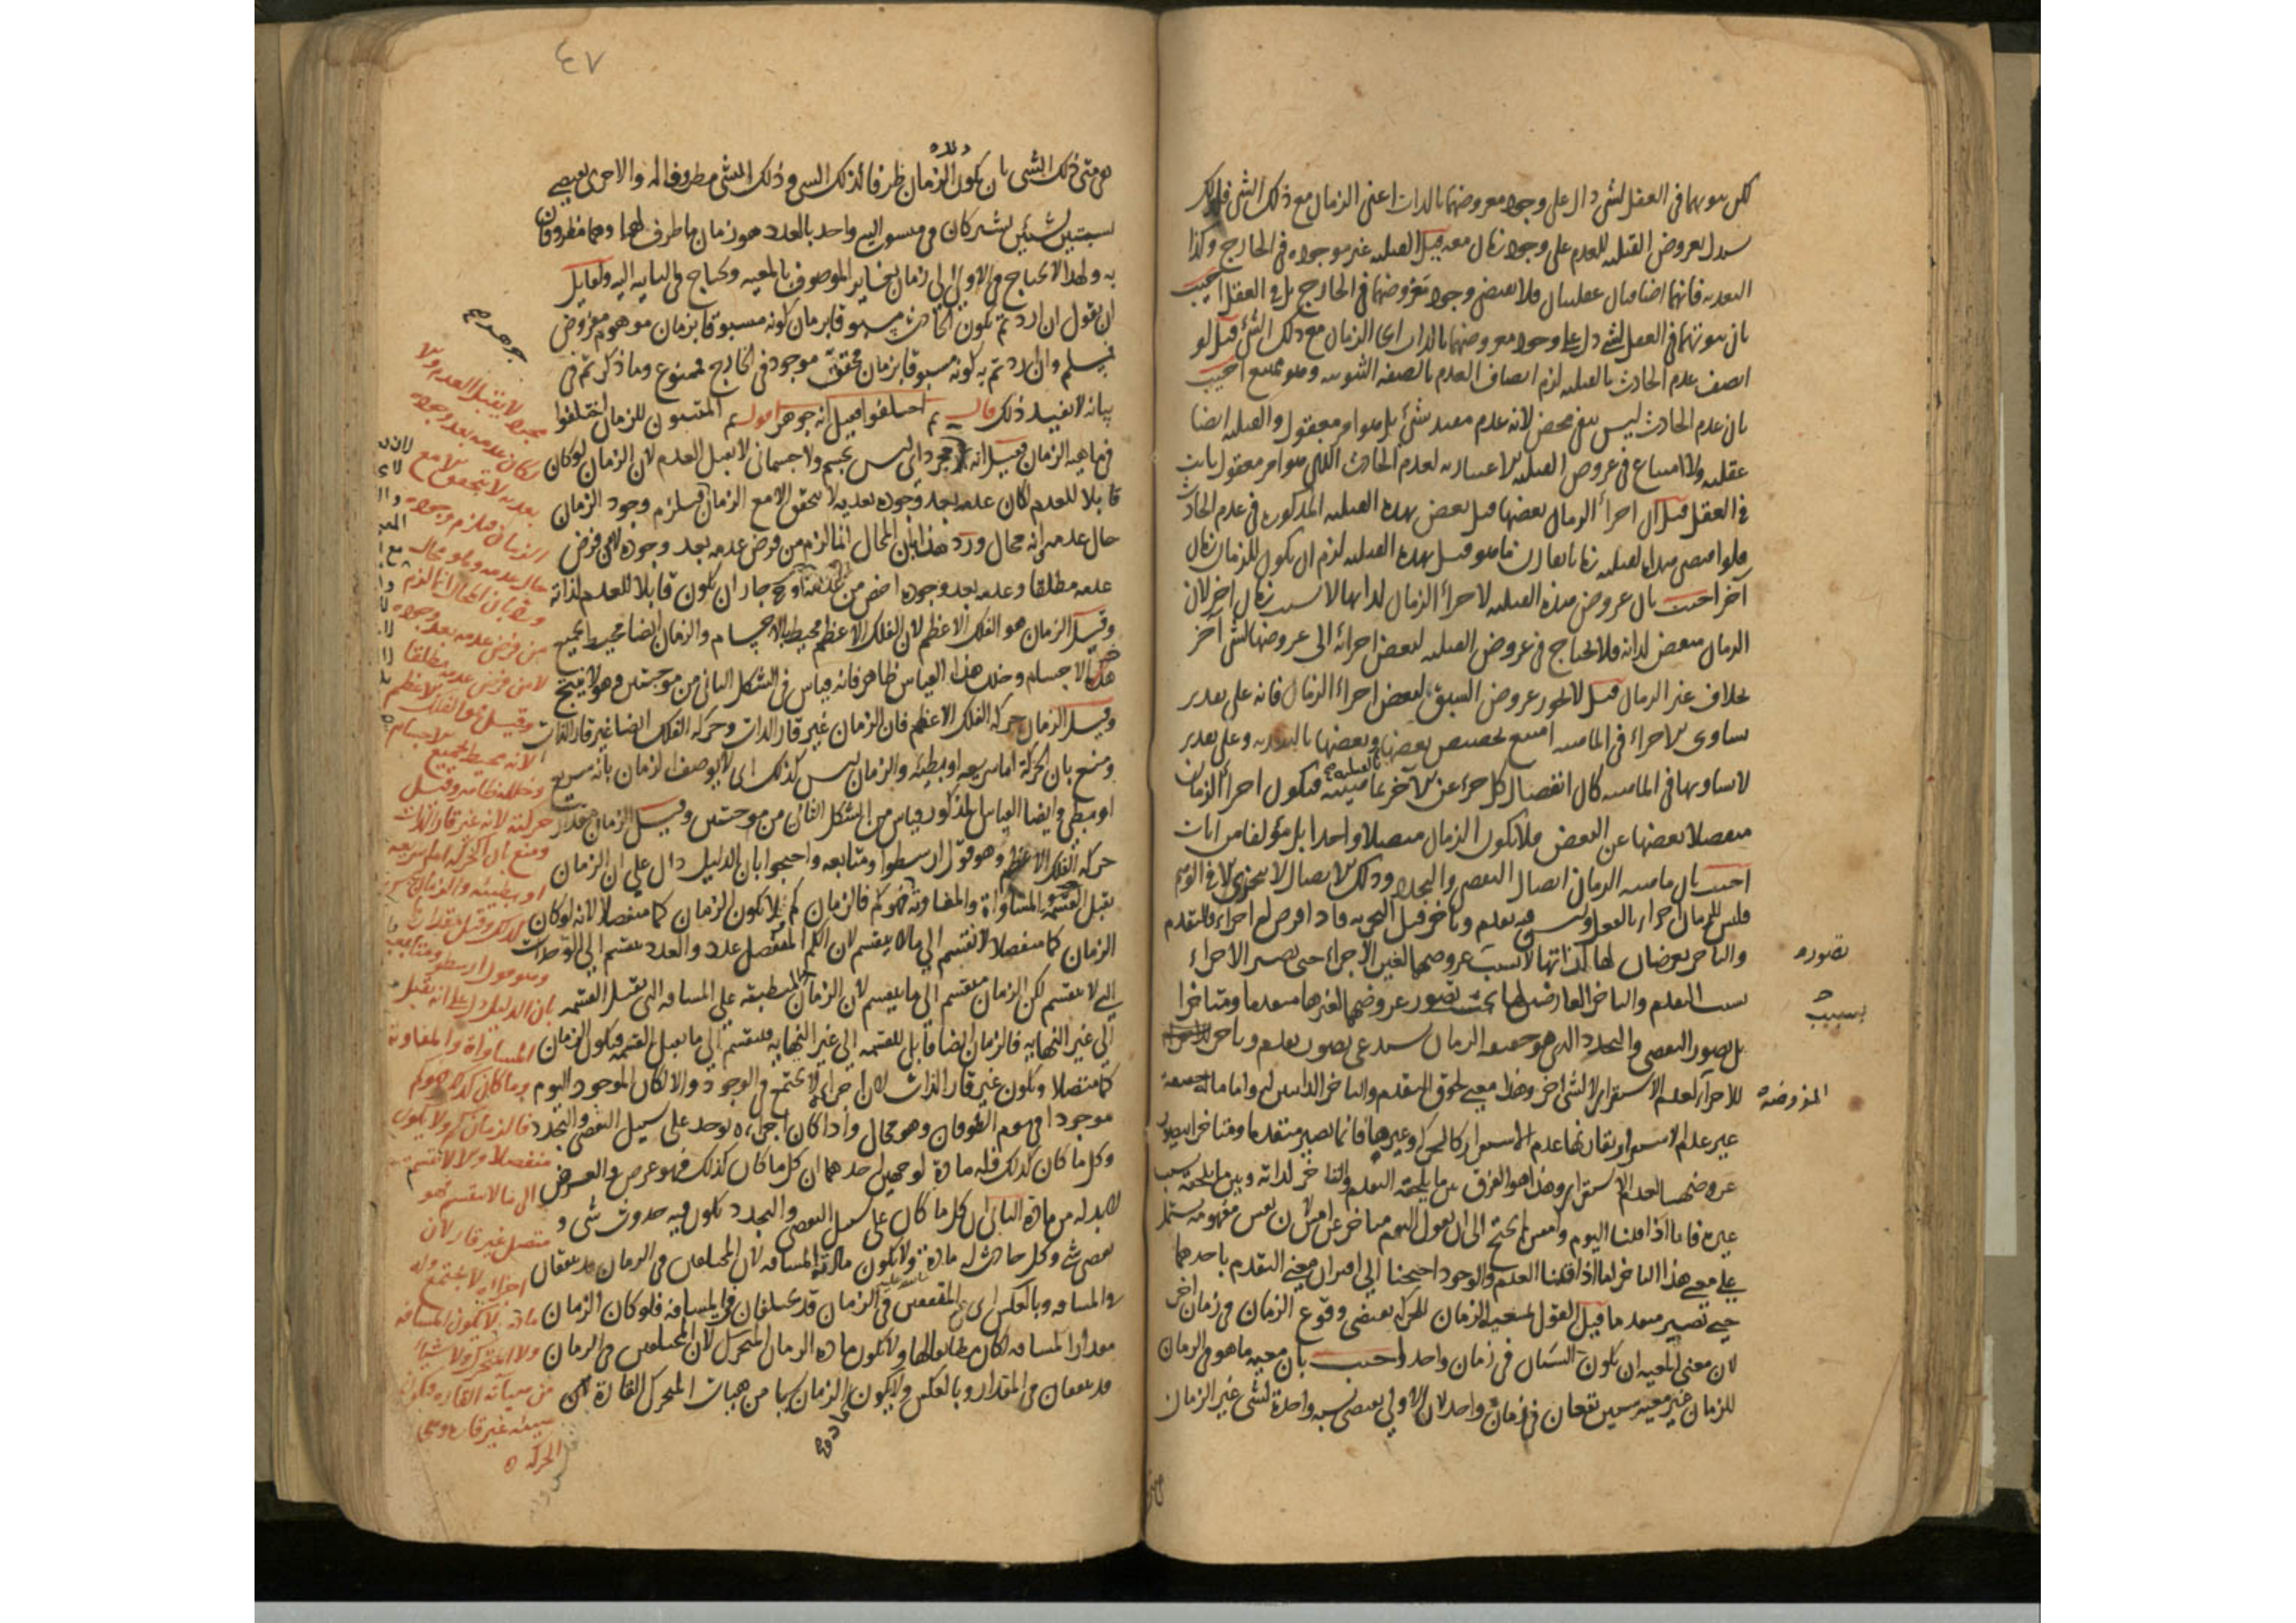 لكن ثبوتهما في العقل لشئ دال على وجود معروضهما بالذات اعنى الزمان مع ذلك الشئ فلذلك
يستدل بعروض القبليه للعدم على وجود زمان معه قيل القبليه غير موجوده في الخارج وكذا
البعديه فانهما اضافيان عقليتان فلا يقتضى وجود معروضهما في الخارج بل في العقل اجيب
بان ثبوتهما في العقل لشئ دل على وجود معروضهما بالذات اى الزمان مع ذلك الشئ قيل لو
اتصف عدم الحادث بالقبليه لزم اتصاف العدم بالصفه الثبوتيه وهو ممتنع اجيب
بان عدم الحادث ليس نفى محض لانه عدم مقيد بشئ بل هو امر معقول والقبليه ايضا
عقليه ولا امتناع في عروض القبليه الاعتباريه لعدم الحادث الذى هو امر معقول ثابت
في العقل قيل ان اجزاء الزمان بعضها قبل بعض بهذه القبليه المذكوره في عدم الحادث
فلو اقتضى هذه القبليه زمانا يقارن ما هو قبل بهذه القبليه لزم ان يكون للزمان زمان
آخر اجيب بان عروض هذه القبليه لاجزاء الزمان لذاتها لا بسبب زمان اخر لان
الزمان متقض لذاته فلا يحتاج في عروض القبليه لبعض اجزائه الى عروضها لشئ آخر
بخلاف غير الزمان قيل لا يجوز عروض السبق لبعض اجزاء الزمان فانه على تقدير
تساوى الاجزاء في الماهيه امتنع تخصيص بعضها بالقبليه وبعضها بالبعديه وعلى تقدير
لا تساويها في الماهيه كان انفصال كل جزء عن الآخر بماهيته فيكون اجزاء الزمان
منفصلا بعضها عن البعض فلا يكون الزمان متصلا واحدا بل مؤلفا من آنات
اجيب بان ماهيه الزمان اتصال التقضى والتجدد وذلك الاتصال لا يتجزى الا في الوهم
فليس للزمان اجزاء بالفعل وليس فيه تقدم وتاخر قبل التجزيه فاذا فرض له اجزاء فالتقدم
والتاخر يعرضان لها لذاتها لا بسبب عروضهما لغير الاجزاء حتى يصير الاجزاء
بسبب التقدم والتاخر العارضين لها بحيث تصور عروضهما لغيرها متقدما ومتاخرا
بل تصور التقضى والتجدد الذى هو حقيقه الزمان يستدعى تصور تقدم وتاخر
للاجزاء لعدم الاستقرار لا لشئ اخر وهذا معنى لحوق التقدم والتاخر الذاتيين له واما ماله حقيقة
غير عدم الاستقرار يقارنها عدم الاستقرار كالحركه وغيرها فانما تصير متقدما ومتاخرا بتصور
عروضهما لعدم الاستقرار وهذا هو الفرق بين ما يلحقه التقدم والتاخر لذاته وبين ما يلحقه بسبب
غيره فانا اذا قلنا اليوم وامس لم نحتج الى ان نقول اليوم متاخر عن امس لان نفس مفهومه يشتمل
على معنى هذا التاخر اما اذا قلنا العدم والوجود احتجنا الى اقتران معنى التقدم باحدهما
حتى تصير متقدما قيل القول بمعيه الزمان للحركه يقتضى وقوع الزمان في زمان اخر
لان معنى المعيه ان يكون الشيئان في زمان واحد اجيب بان معيه ما هو في الزمان
للزمان غير معيه شيئين يقعان في زمان واحد لان الاولى يقتضى نسبه واحدة لشئ غير الزمان
تصوره
بسبب
المفروضة
٤٧
هى متى ذلك الشئ بان يكون الزمان ظرفا لذلك الشئ وذلك الشئ مظروفا له والاخرى يقتضى
نسبتين لشيئين يشتركان في منسوب اليه واحد بالعدد هو زمان ما ظرف لهما وهما مظروفان
به ولهذا لا يحتاج في الاولى الى زمان يغاير الموصوف بالمعيه ويحتاج في الثانيه اليه ولقايل
ان يقول ان اردتم بكون الحادث مسبوقا بزمان كونه مسبوقا بزمان موهوم مفروض
فمسلم وان اردتم به كونه مسبوقا بزمان محقق موجود في الخارج فممنوع وما ذكرتم في
بيانه لا يفيد ذلك قال ثم اختلفوا فقيل انه جوهر اقول ثم المثبتون للزمان اختلفوا
في ماهيه الزمان فقيل انه مجرد اى ليس بجسم ولا جسمانى لا يقبل العدم لان الزمان لو كان
قابلا للعدم لكان عدمه بعد وجوده بعديه لا يتحقق الا مع الزمان فيلزم وجود الزمان
حال عدمه وانه محال ورد هذا بان المحال انما لزم من فرض عدمه بعد وجوده لا من فرض
عدمه مطلقا وعدمه بعد وجوده اخص من عدمه وح جاز ان يكون قابلا للعدم لذاته
وقيل الزمان هو الفلك الاعظم لان الفلك الاعظم محيط بالاجسام والزمان ايضا محيط بجميع
الاجسام وخلل هذا القياس ظاهر فانه قياس في الشكل الثانى من موجبتين وهو لا ينتج
وقيل الزمان حركه الفلك الاعظم فان الزمان غير قار الذات وحركه الفلك ايضا غير قار الذات
ومنع بان الحركة اما سريعه او بطيئه والزمان ليس كذلك اى لا يوصف الزمان بانه سريع
او بطئ وايضا القياس المذكور قياس من الشكل الثانى من موجبتين وقيل الزمان مقدار
حركه الفلك الاعظم وهو قول ارسطو ومتابعه واحتجوا بان الدليل دال على ان الزمان
يقبل القسمه المساواة والمفاوته فهو كم فالزمان كم ولا يكون الزمان كما منفصلا لانه لو كان
الزمان كما منفصلا لانقسم الى ما لا ينقسم لان الكم المنفصل عدد والعدد ينقسم الى الوحدات
التى لا تنقسم لكن الزمان منقسم الى ما ينقسم لان الزمان المنطبقه على المسافه التى تقبل القسمه
الى غير النهايه فالزمان ايضا قابل للقسمه الى غير النهايه فينقسم الى ما يقبل القسمه فيكون الزمان
كما متصلا ويكون غير قار الذات لان اجزاءه لا تجتمع في الوجود والا لكان الموجود اليوم
موجودا في يوم الطوفان وهو محال واذا كان اجزاءه توجد على سبيل التقضى والتجدد
وكل ما كان كذلك فله مادة لوجهين احدهما ان كل ما كان كذلك فهو عرض والعرض
لابد له من مادة الثانى ان كل ما كان على سبيل التقضى والتجدد يكون فيه حدوث شئ و
تقضى شئ وكل حادث له مادة ولا يكون مادته المسافه لان المختلفين في الزمان قد يتفقان
في المسافه وبالعكس اى المتفقين في الزمان قد يختلفان في المسافه فلو كان الزمان
مقدار المسافه لكان مطابقا لها ولا يكون مادة الزمان المتحرك لان المختلفين في الزمان
قد يتفقان في المقدار وبالعكس ولا يكون الزمان من هيئات المتحرك القارة
جوهر
مجرد لا يقبل العدم والا
لكان عدمه بعد وجوده
بعديه لا يتحقق الا مع
الزمان فيلزم وجوده
حال عدمه وهو محال
ورد بان المحال انما لزم
من فرض عدمه بعد وجوده
لا من فرض عدمه مطلقا
وقيل هو الفلك الاعظم
لانه محيط بجميع الاجسام
وخلله ظاهر وقيل
حركته لانه غير قار الذات
ومنع بان الحركه اما سريعه
او بطيئه والزمان ليس
كذلك وقيل مقدارها
وهو قول ارسطو ومتابعيه
بان الدليل دل على انه يقبل
المساواة والمفاوتة
وما كان كذلك فهو كم
فالزمان كم ولا يكون
منفصلا والا لانقسم
الى ما لا ينقسم فهو
متصل غير قار لان
اجزاءه لا تجتمع وله
مادة لا يكون المسافه
ولا المتحرك ولا شيئا
من هيئاته القارة فيكون
هيئة غير قارة وهى
الحركه